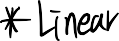 * Linear